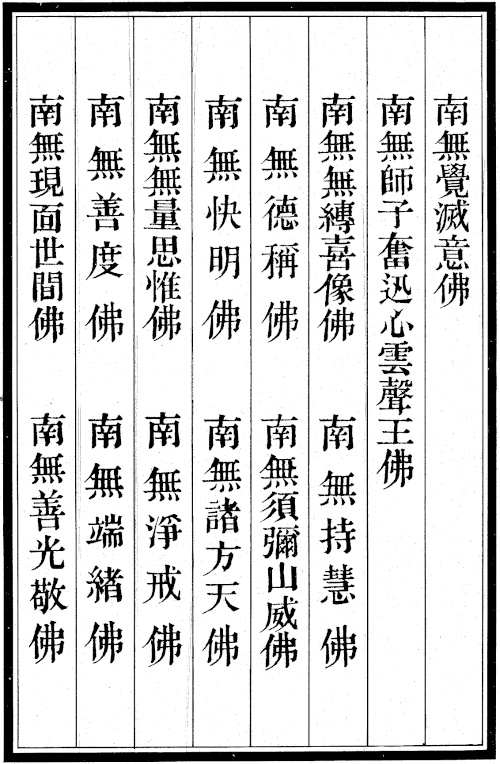 南無覺滅意佛
南無師子奮迅心雲聲王佛
南無無縛喜像佛　南無持慧佛
南無德稱佛　南無須彌山威佛
南無快明佛　南無諸方天佛
南無無量思惟佛　南無淨戒佛
南無善度佛　南無端緒佛
南無現面世間佛　南無善光敬佛